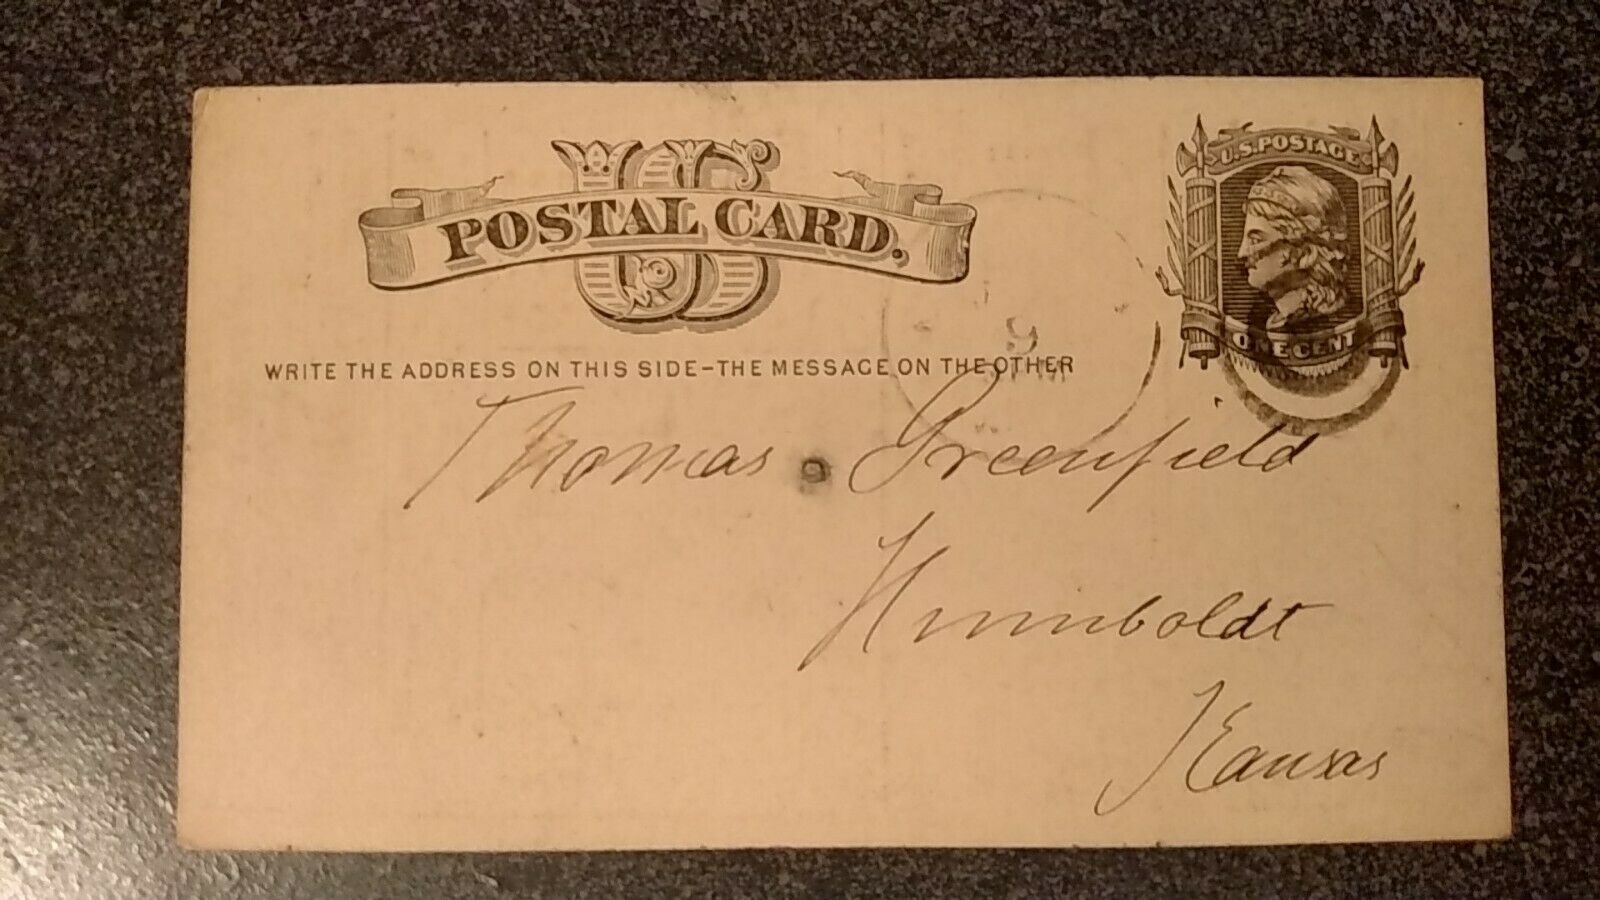 US
POSTAL CARD.
U.S. POSTAGE
ONE CENT
WRITE THE ADDRESS ON THIS SIDE-THE MESSAGE ON THE OTHER
9
Thomas Greenfield
Humboldt
Kansas